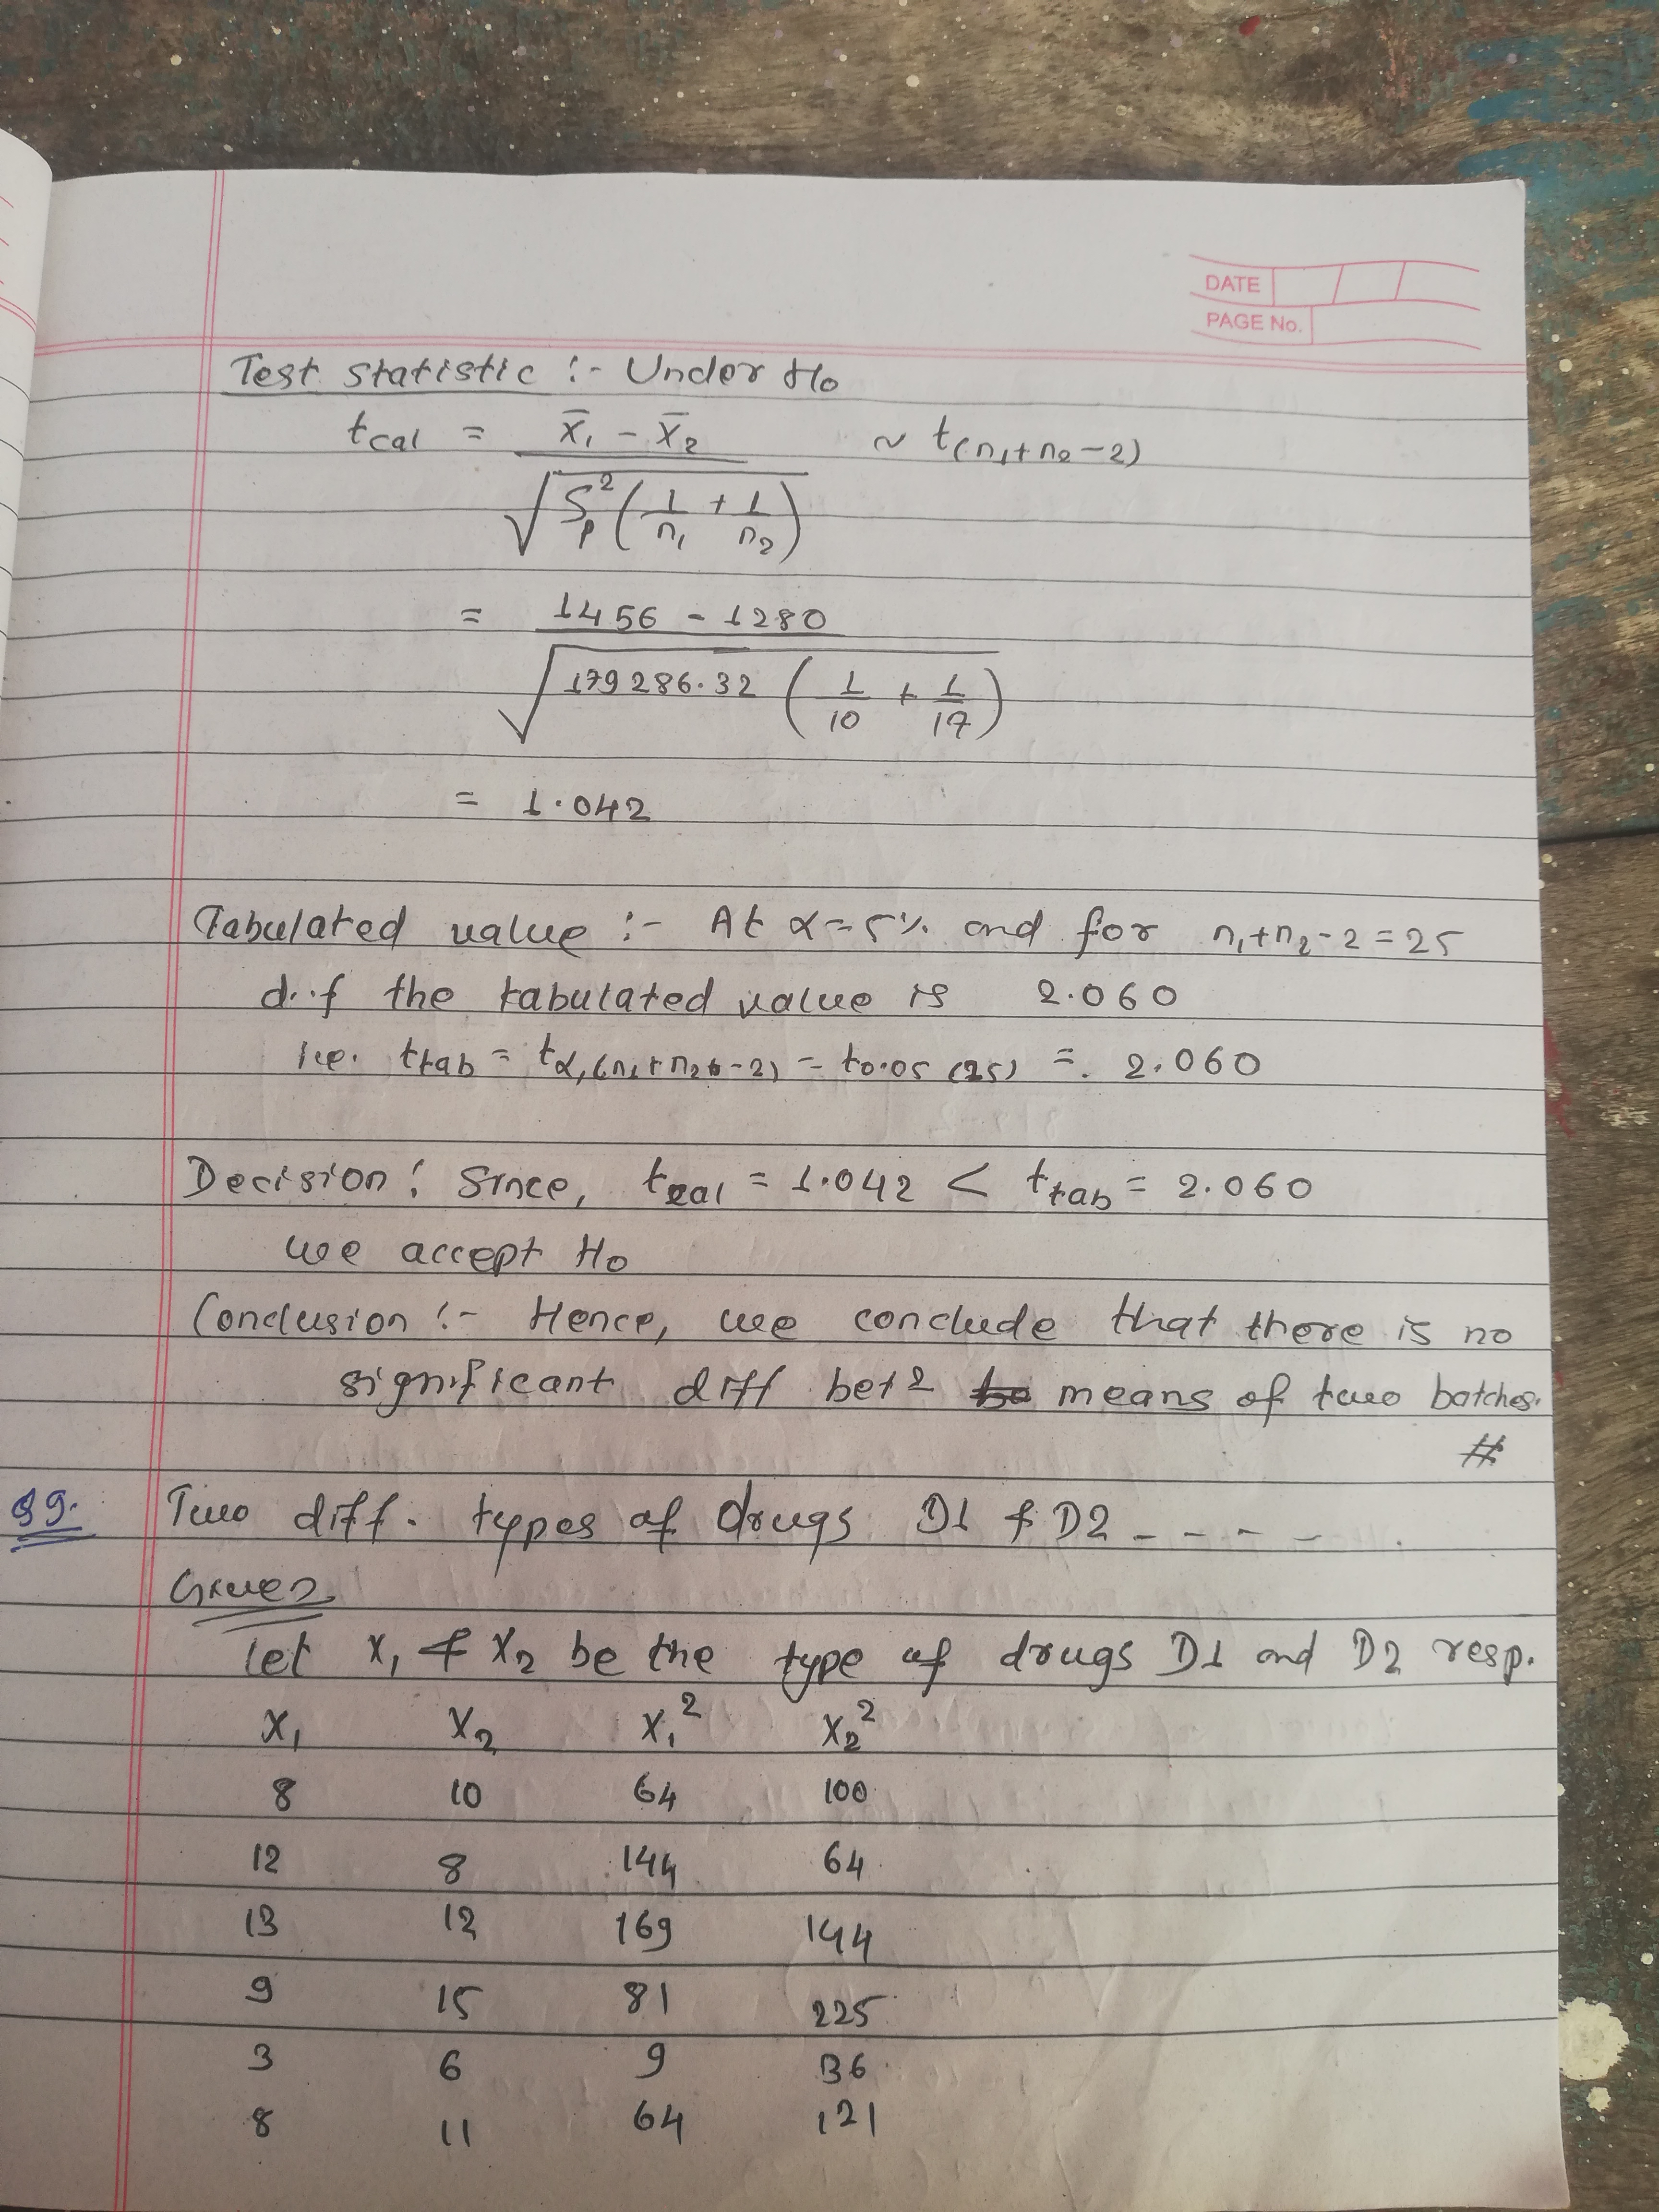 DATE
PAGE No.
Test statistic :- Under H₀
t_cal = x̄₁ - x̄₂ / √(S_p² (1/n₁ + 1/n₂)) ~ t(n₁+n₂-2)
= 1456 - 1280 / √(179286.32 (1/10 + 1/17))
= 1.042
Tabulated value :- At α=5% and for n₁+n₂-2=25
d.f the tabulated value is 2.060
i.e. t_tab = t_α,(n₁+n₂-2) = t_0.05 (25) = 2.060
Decision : Since, t_cal = 1.042 < t_tab = 2.060
we accept H₀
Conclusion :- Hence, we conclude that there is no
significant diff betⁿ means of two batches.
#
Q9. Two diff. types of drugs D1 & D2 - - - -
Given
Let x₁ & x₂ be the type of drugs D1 and D2 resp.
x₁ x₂ x₁² x₂²
8 10 64 100
12 8 144 64
13 12 169 144
9 15 81 225
3 6 9 36
8 11 64 121